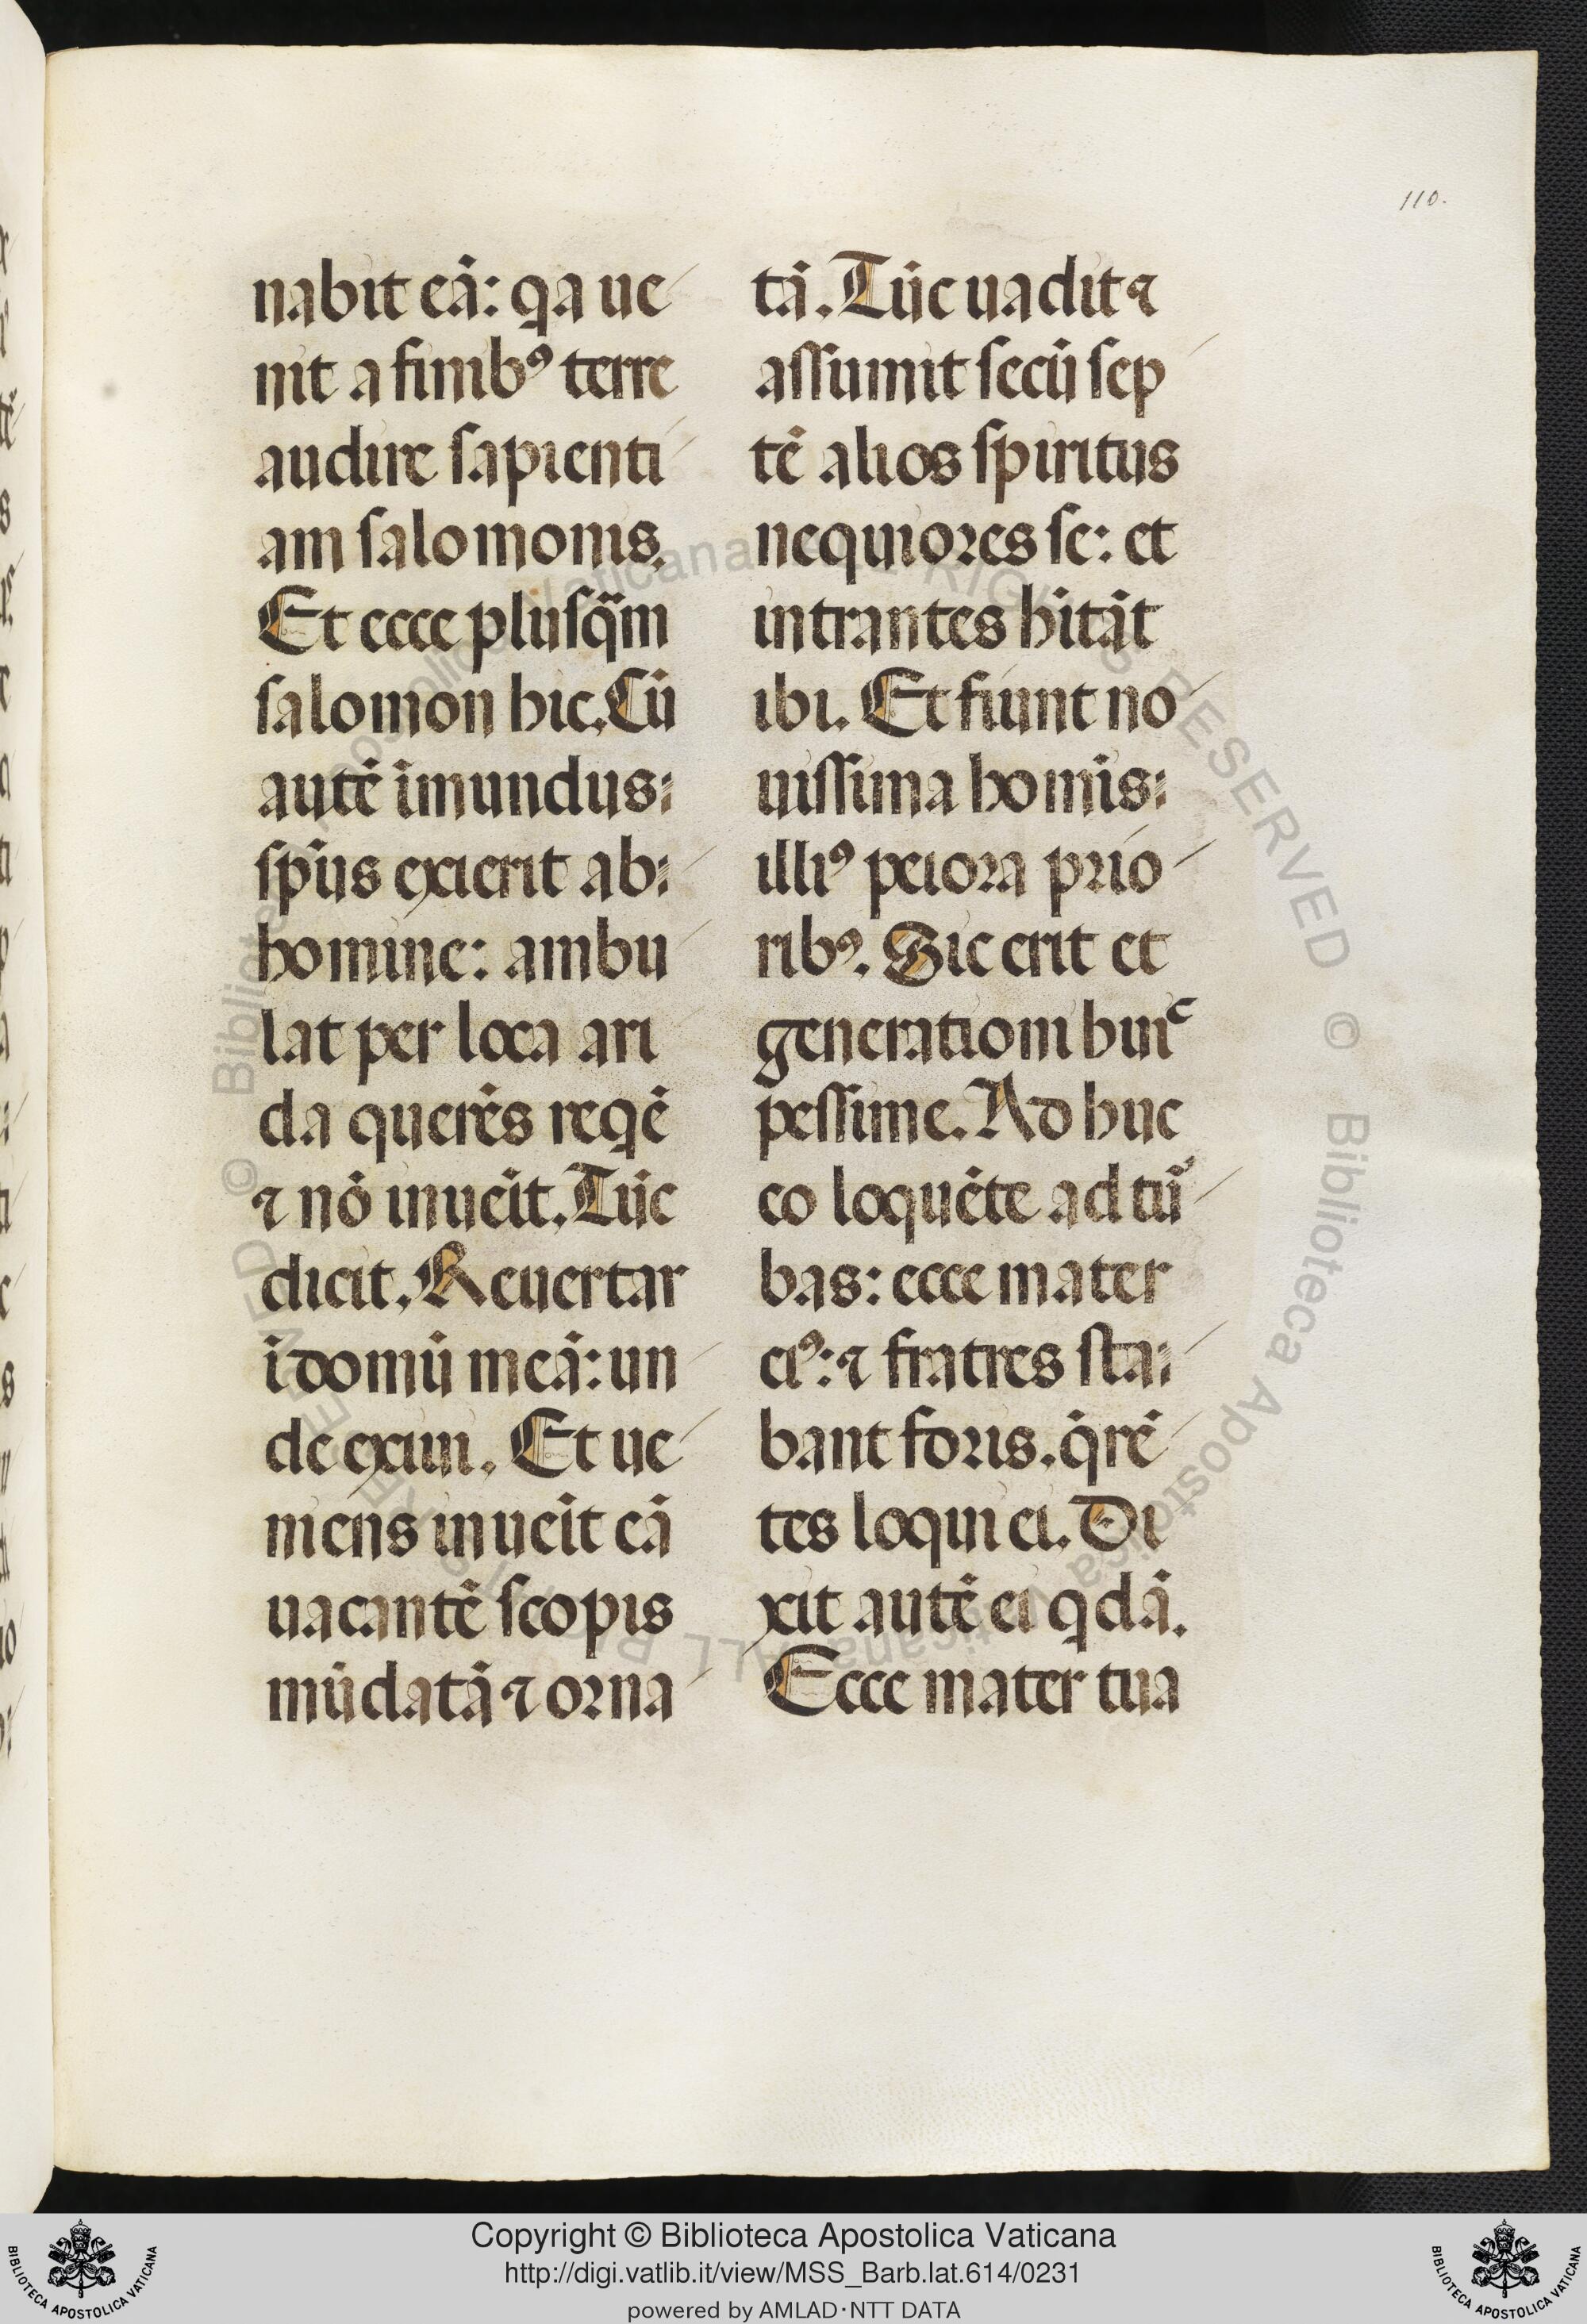 110.
nabit eā: qa ue
nit a finibꝰ terre
audire sapienti
am salomonis.
Et ecce plusq̄m
salomon hic. Cū
autē īmundus:
sp̄us exierit ab:
homine: ambu
lat per loca ari
da querēs reqē
⁊ nō inueīt. Tūc
dicit. Reuertar
ī domū meā: un
de exiui. Et ue
niens inueīt eā
uacantē scopis
mūdatā ⁊ orna
tā. Tūc uadit ⁊
assumit secū sep
tē alios spiritus
nequiores se: et
intrantes hītāt
ibi. Et fiunt no
uissima homīs:
illiꝰ peiora prio
ribꝰ. Sic erit et
generationi huiᶜ
pessime. Ad huc
eo loquēte ad tū
bas: ecce mater
eiꝰ: ⁊ fratres sta:
bant foris. q̄rē
tes loqui ei. Di
xit autē ei qdā.
Ecce mater tua
© Biblioteca Apostolica Vaticana ALL RIGHTS RESERVED
Copyright © Biblioteca Apostolica Vaticana
http://digi.vatlib.it/view/MSS_Barb.lat.614/0231
powered by AMLAD·NTT DATA
BIBLIOTECA APOSTOLICA VATICANA
BIBLIOTECA APOSTOLICA VATICANA